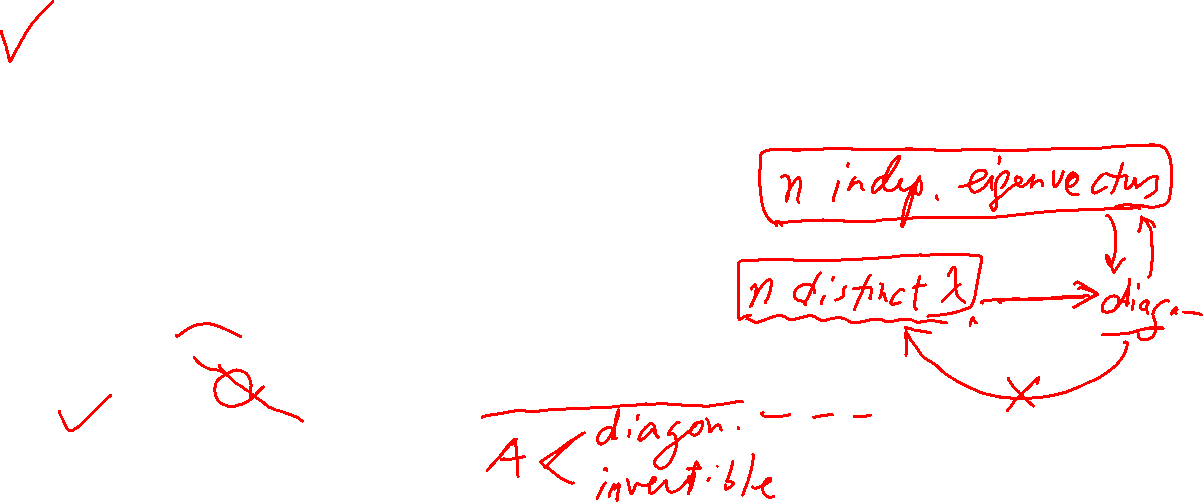 n indep. eigenvectors
n distinct λ
diag.
A < diagon.
invertible